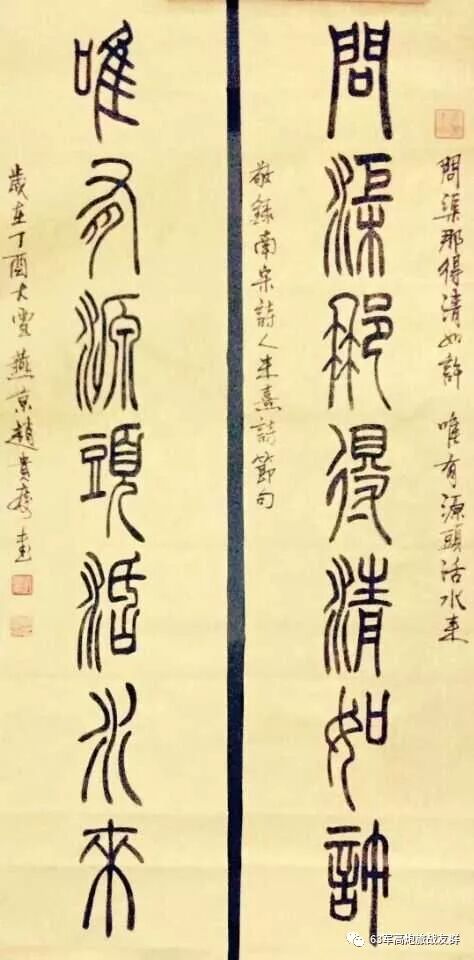 問渠那得清如許 唯有源頭活水来
問渠那得清如許
敬錄南宋詩人朱熹詩節句
唯有源頭活水來
歲在丁酉大雪燕京趙貴
63军高炮旅战友群